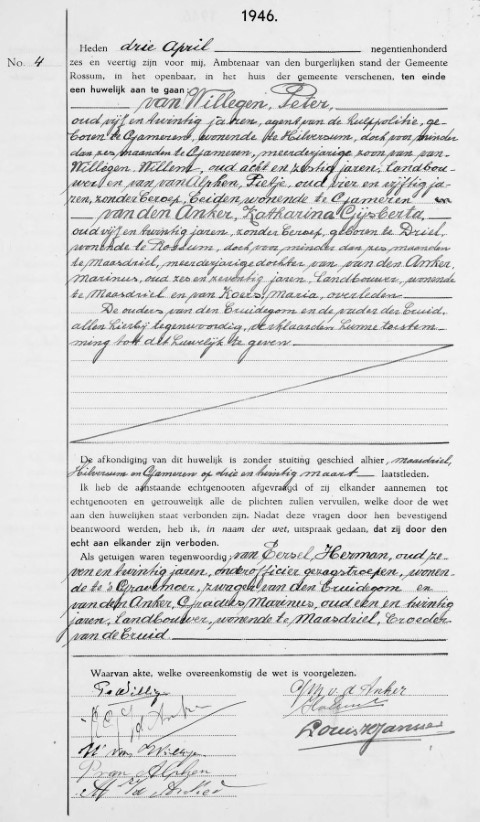 1946.
No. 4
Heden drie April negentienhonderd
zes en veertig zijn voor mij, Ambtenaar van den burgerlijken stand der Gemeente
Rossum, in het openbaar, in het huis der gemeente verschenen, ten einde
een huwelijk aan te gaan:
van Willegen, Peter,
oud vijf en twintig jaren, agent van de hulppolitie, ge-
boren te Gameren, wonende te Hilversum, doch voor minder
dan zes maanden te Gameren, meerderjarige zoon van van
Willegen, Willem, oud acht en zestig jaren, landbou-
wer en van van Alphen, Pietje, oud vier en vijftig ja-
ren, zonder beroep, beiden wonende te Gameren en
van den Anker, Katharina Gijsberta,
oud vijf en twintig jaren, zonder beroep, geboren te Driel,
wonende te Rossum, doch voor minder dan zes maanden
te Maasdriel, meerderjarige dochter van van den Anker,
Marinus, oud zes en zeventig jaren, landbouwer, wonende
te Maasdriel en van Koers, Maria, overleden
De ouders van den bruidegom en de vader der bruid,
allen hierbij tegenwoordig, verklaarden hunne toestem-
ming tot dit huwelijk te geven
De afkondiging van dit huwelijk is zonder stuiting geschied alhier, Maasdriel,
Hilversum en Gameren op drie en twintig maart laatstleden.
Ik heb de aanstaande echtgenooten afgevraagd of zij elkander aannemen tot
echtgenooten en getrouwelijk alle de plichten zullen vervullen, welke door de wet
aan den huwelijken staat verbonden zijn. Nadat deze vragen door hen bevestigend
beantwoord werden, heb ik, in naam der wet, uitspraak gedaan, dat zij door den
echt aan elkander zijn verboden.
Als getuigen waren tegenwoordig van Eersel, Herman, oud ze-
ven en twintig jaren, onderofficier gezagstroepen, wonen-
de te 's Gravenmoer, zwager van den bruidegom en
van den Anker, Gradus Marinus, oud een en twintig
jaren, landbouwer, wonende te Maasdriel, broeder
van de bruid
Waarvan akte, welke overeenkomstig de wet is voorgelezen.
G M v. d Anker
W van
P van Alphen